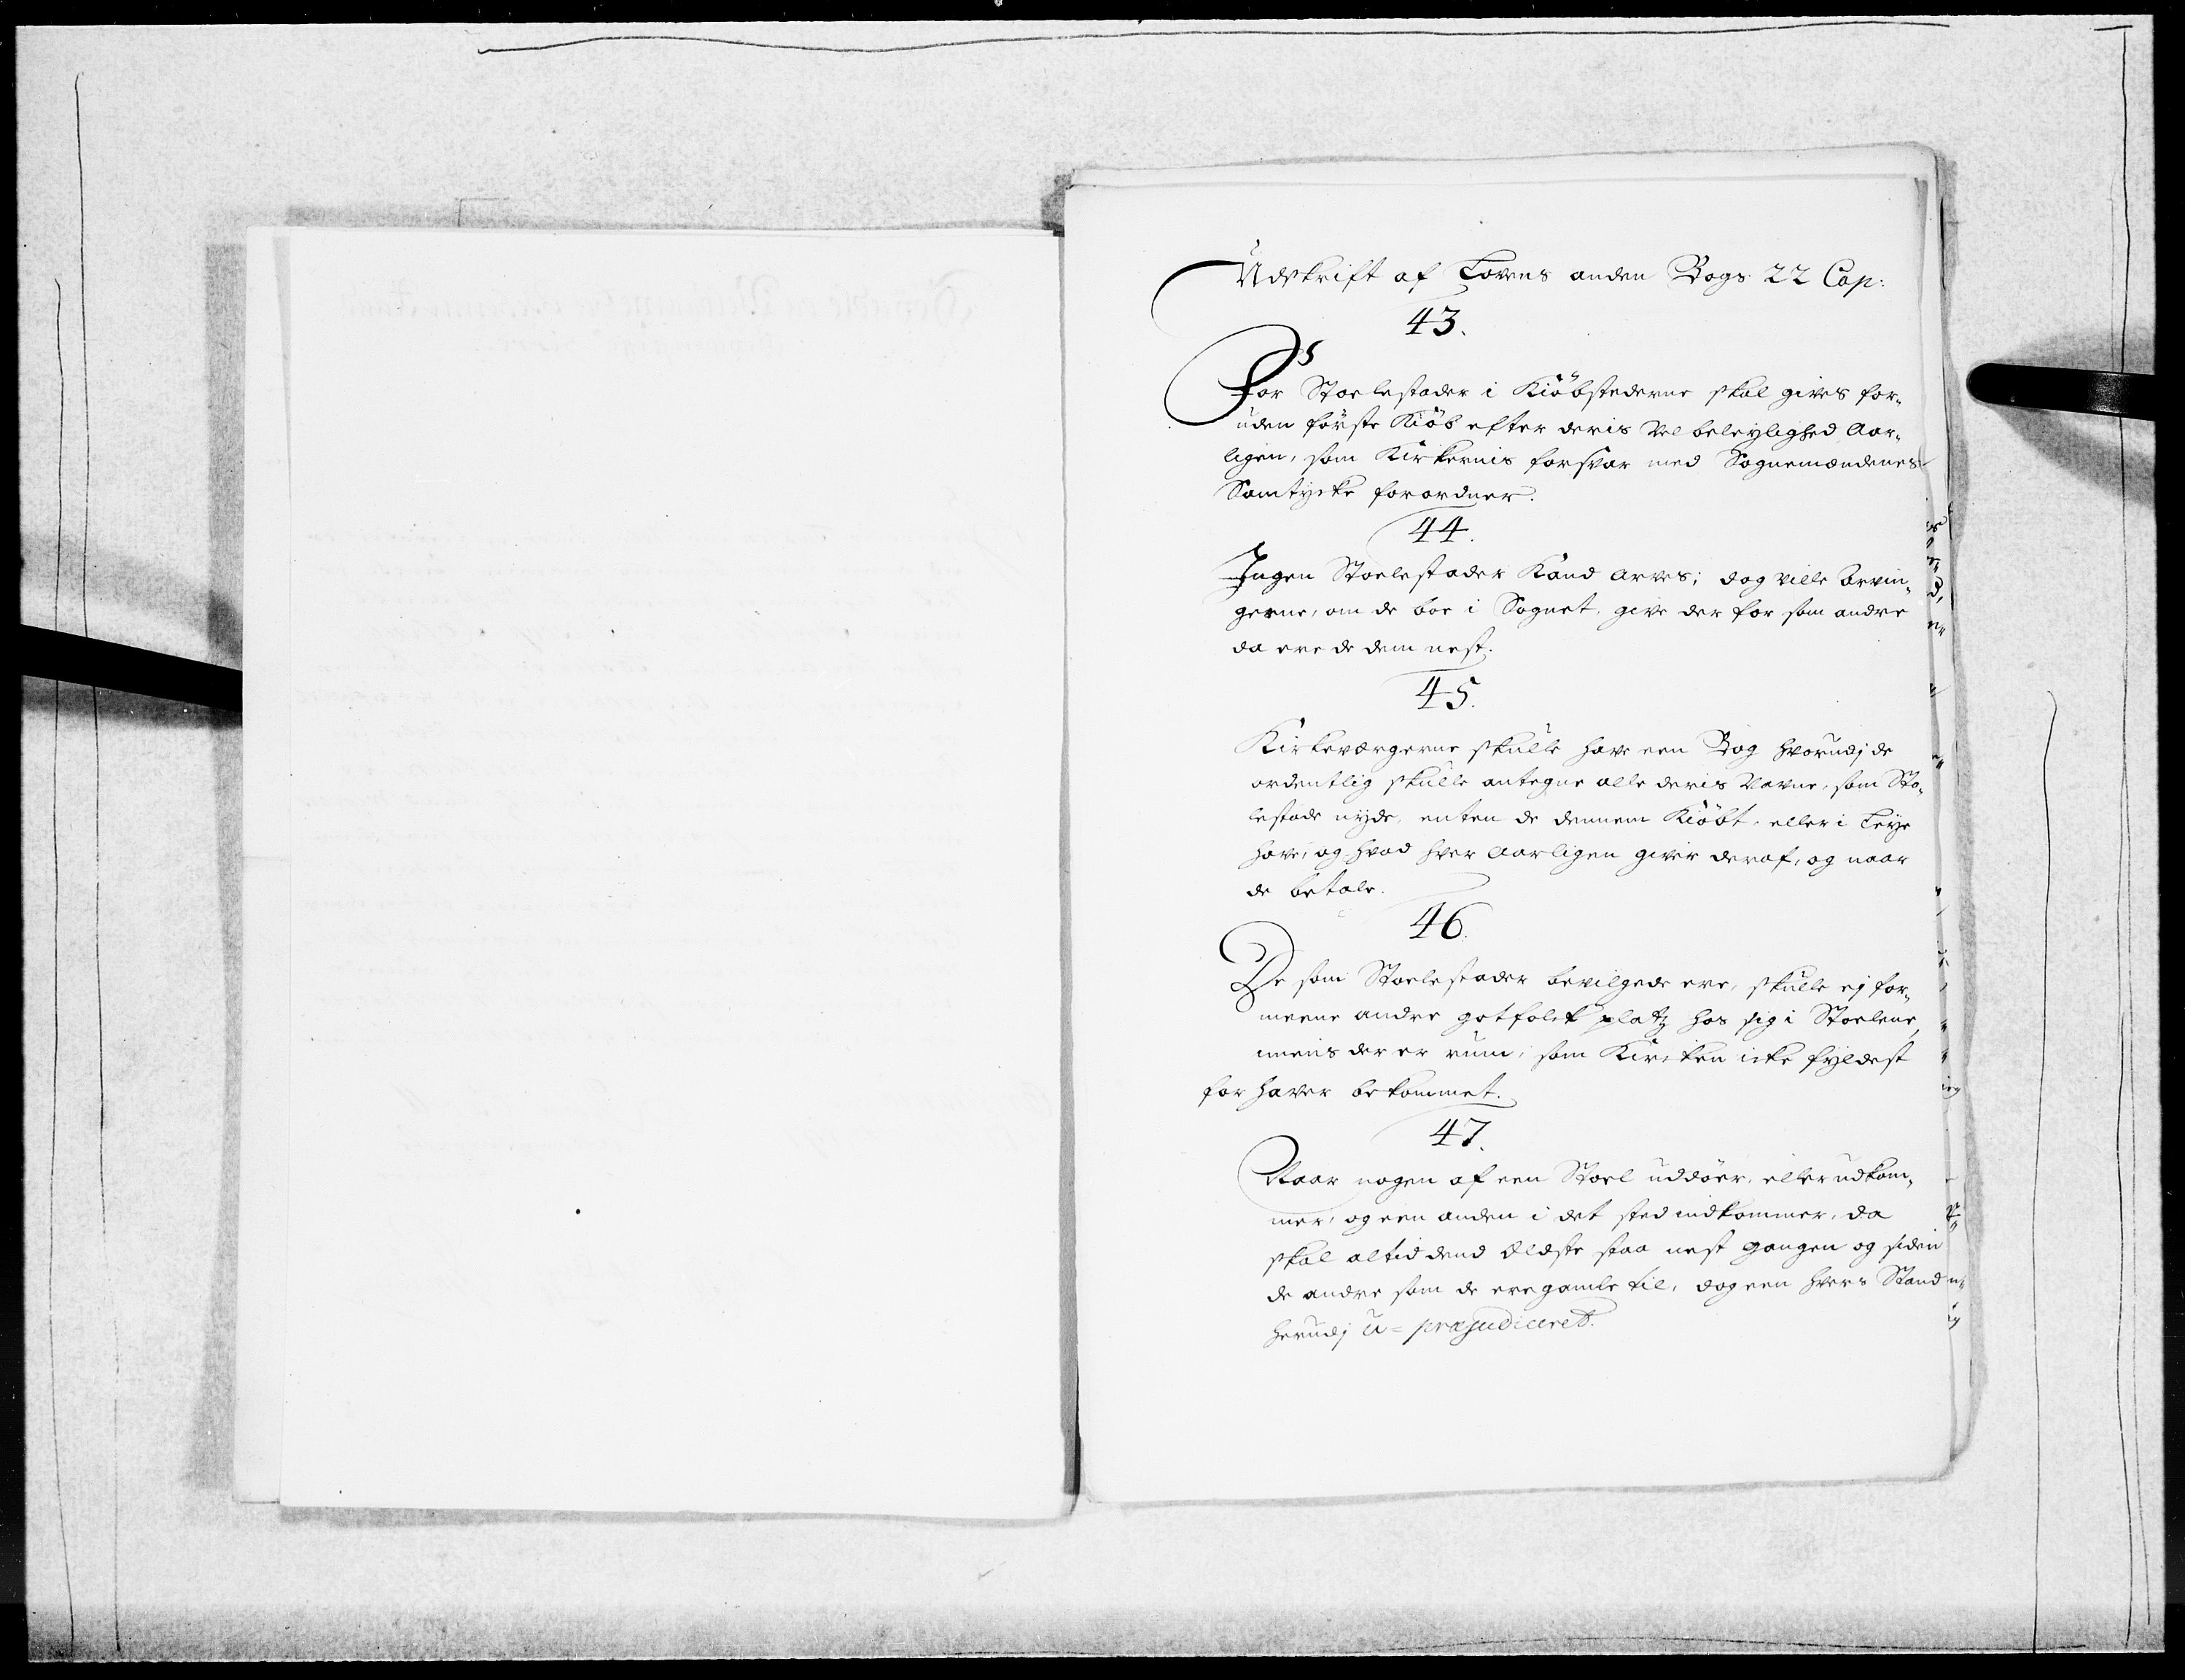 Udskrift af Lovens anden Bogs 22 Cap:
43.
For Stoelestader i Kiöbstederne skal gives for„
uden förste Kiöb efter deris Vel beleylighed Aar„
ligen, som Kirkernis forsvar med Sognemændenes
Samtycke forordner.
44.
Ingen Stoelestader Kand arves; dog ville Arvin„
gerne, om de boe i Sognet, give der for som andre
da ere de dem nest.
45.
Kirkeværgerne skulle have een Bog hvorudj de
ordentlig skulle antegne alle deris Navne, som Sto„
lestade nyde, enten de dennem Kiöbt, eller i Leye
have, og hvad hver Aarligen giver deraf, og naar
de betale.
46.
De som Stoelestader bevilgede ere, skulle ej for„
meene andre gotfolck platz hos sig i Stoelene,
imens der er rum, som Kircken icke fyldest
for haver bekommet.
47.
Naar nogen af een Stoel uddöer, eller udkom„
mer, og een anden i det sted indkommer, da
skal altid dend Ældste staa nest gangen og siden
de andre som de ere gamle til, dog een hvers Stand
herudj u= præjudiceret.